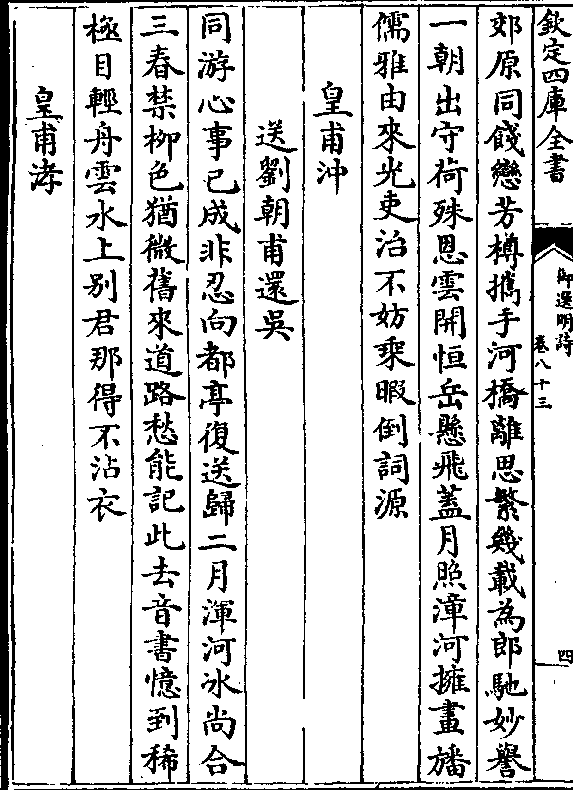 欽定四庫全書
御選明詩
卷八十三
四
郊原同餞戀芳樽攜手河橋離思繁幾載為郎馳妙譽
一朝出守荷殊恩雲開恒岳懸飛蓋月照漳河擁畫旛
儒雅由來光吏治不妨乘暇倒詞源
皇甫沖
送劉朝甫還吳
同游心事已成非忍向都亭復送歸二月渾河冰尚合
三春禁柳色猶微舊來道路愁能記此去音書憶到稀
極目輕舟雲水上别君那得不沾衣
皇甫涍